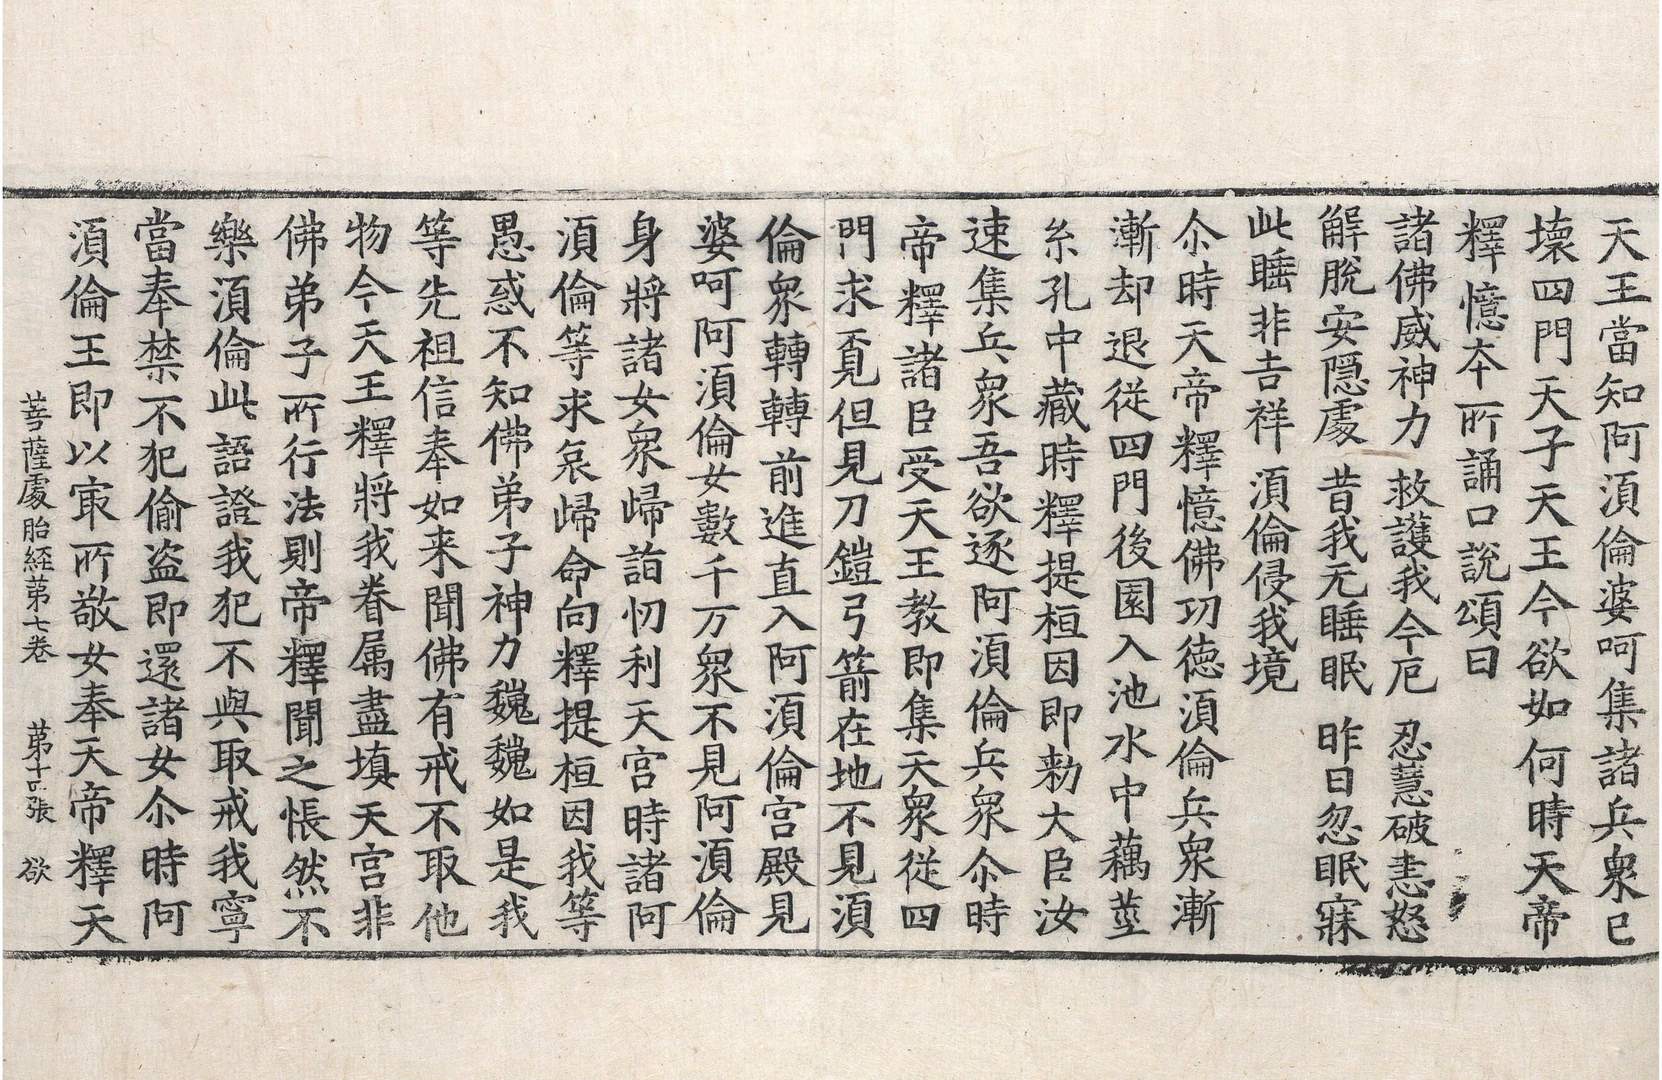 天王當知阿湏倫婆呵集諸兵衆已
壞四門天子天王今欲如何時天帝
釋憶夲所誦口說頌曰
諸佛威神力 救護我今厄 忍慧破恚怒
解脫安隱處 昔我无睡眠 昨日忽眠寐
此睡非吉祥 湏倫侵我境
尒時天帝釋憶佛功徳湏倫兵衆漸
漸却退從四門後園入池水中藕莖
糸孔中藏時釋提桓因即勑大臣汝
速集兵衆吾欲逐阿湏倫兵衆尒時
帝釋諸臣受天王教即集天衆從四
門求覓但見刀鎧弓箭在地不見湏
倫衆轉轉前進直入阿湏倫宮殿見
婆呵阿湏倫女數千万衆不見阿湏倫
身將諸女衆歸詣忉利天宮時諸阿
湏倫等求哀歸命向釋提桓因我等
愚惑不知佛弟子神力巍巍如是我
等先祖信奉如来聞佛有戒不取他
物今天王釋將我眷属盡填天宮非
佛弟子所行法則帝釋聞之悵然不
樂湏倫此語證我犯不與取戒我寧
當奉禁不犯偷盗即還諸女尒時阿
湏倫王即以㝡所敬女奉天帝釋天
菩薩處胎経苐七卷 苐十四張 欲